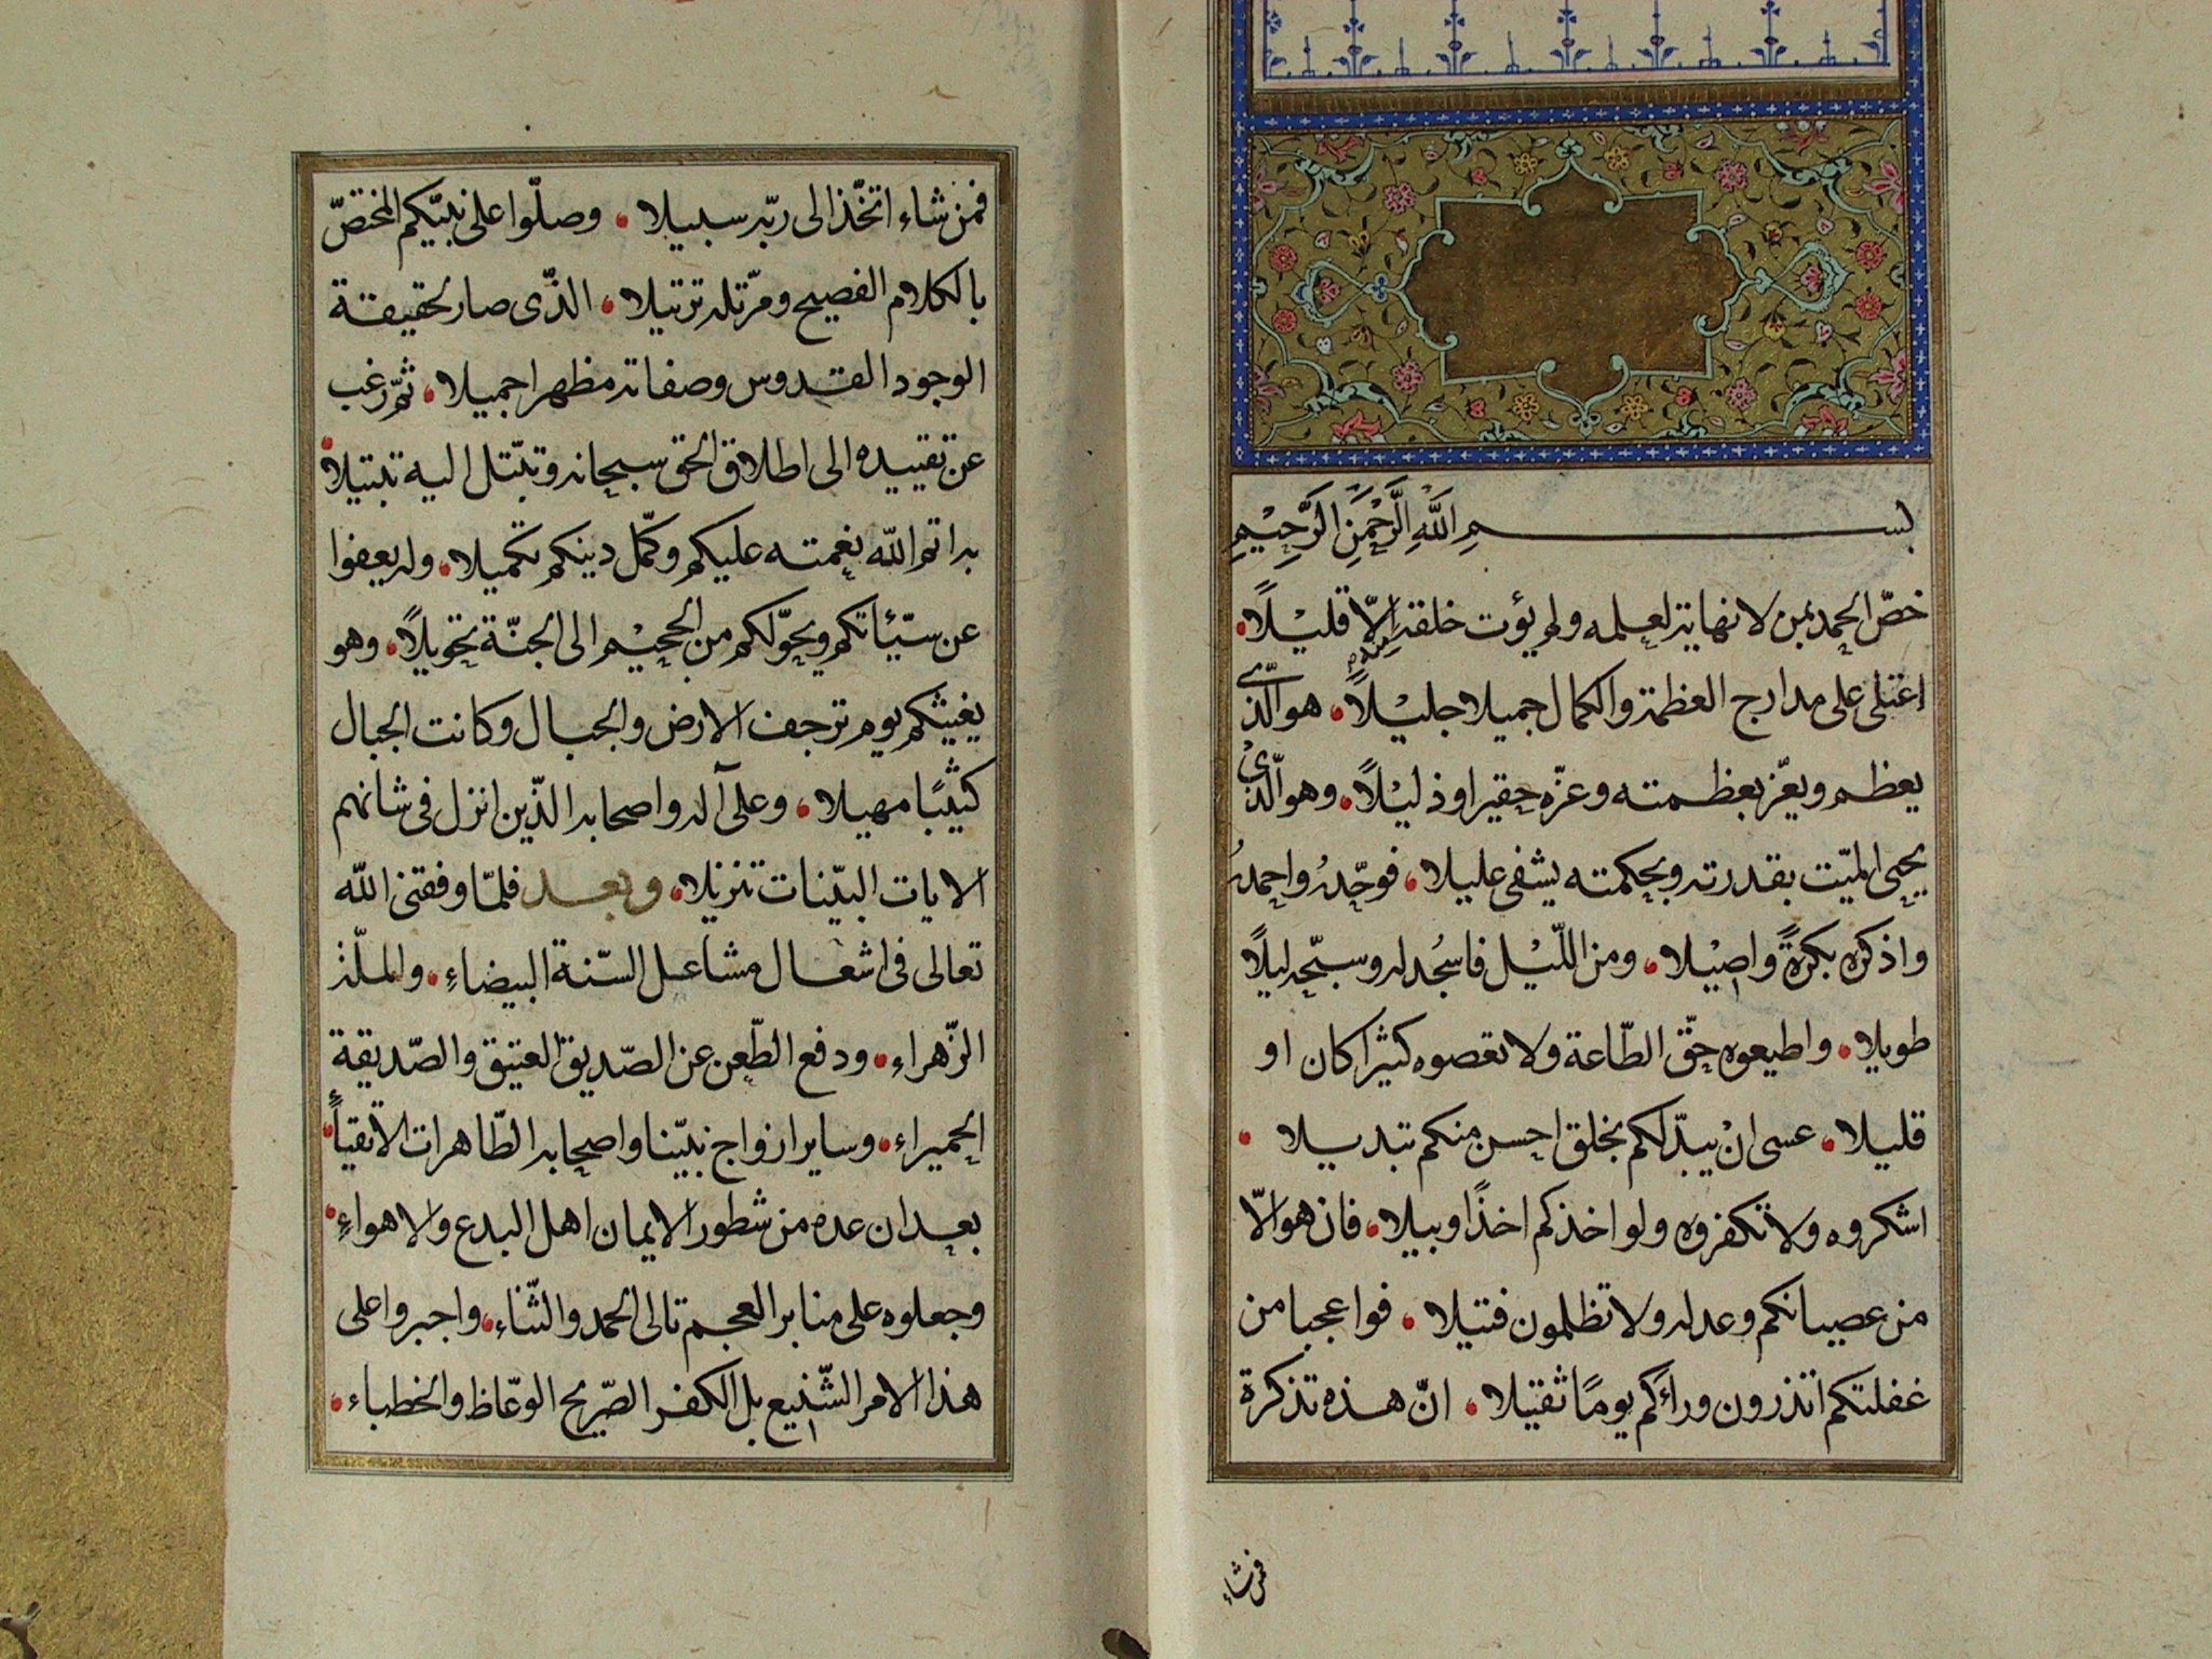 بسم الله الرَّحْمَنِ الرَّحِيْمِ
خصّ الحمد بمن لا نهاية لعلمه ولم يؤت خلقه الّا قليْلًا
اعتلى على مدارج العظمة والكمال جميلا جليْلًا هو الّذى
يعظم ويعزّ بعظمته وعزّه حقيرا وذليْلًا وهو الّذىْ
يحيى الميّت بقدرته وبحكمته يشفى عليلا فوحّدهُ واحمدهُ
واذكره بكرةً واصيْلا ومن اللّيْل فاسْجُد له وسبّحه ليلًا
طويلا واطيعوه حقّ الطّاعة ولا تعصوه كثيرا كان او
قليلا عسى انْ يبدّلكم بخلق احسن منكم تبديلا
اشكروه ولا تكفروه ولو اخذكم اخذًا وبيلا فان هو الّا
من عصيانكم وعدله ولا تظلمون فتيلا فواعجبا من
غفلتكم اتذرون ورائكم يومًا ثقيلا انّ هذه تذكرة
فمن شاء
فمن شاء اتخّذ الى ربّه سبيلا وصلّوا على نبيّكم المختصّ
بالكلام الفصيح ومرّتله ترتيلا الذّى صار لحقيقة
الوجود القدوس وصفاته مظهرا جميلا ثمّ رغب
عن تقييده الى اطلاق الحق سبحانه وتبتّل اليه تبتيلا
به اتم الله نعمته عليكم وكمّل دينكم تكميلا وله يعفوا
عن سيّئاتكم ويحوّلكم من الجحيْم الى الجنّة تحويلًا وهو
يغيثكم يوم ترجف الارض والجبال وكانت الجبال
كثيبًا مهيلا وعلى آله واصحابه الذّين انزل فى شانهم
الايات البيّنات تنزيلا وبعد فلمّا وفقنى الله
تعالى فى اشعال مشاعل السّنة البيضاءِ والملّة
الزّهراء ودفع الطّعن عن الصّديق العتيق والصّديقة
الحميراء وساير ازواج نبيّنا واصحابه الطّاهرات الاتقياء
بعد ان عده من شطور الايمان اهل البدع والاهواءِ
وجعلوه على منابر العجم تالى الحمد والثّناء واجبروا على
هذا الامر الشّنيع بل الكفر الصّريح الوعّاظ والخطباء